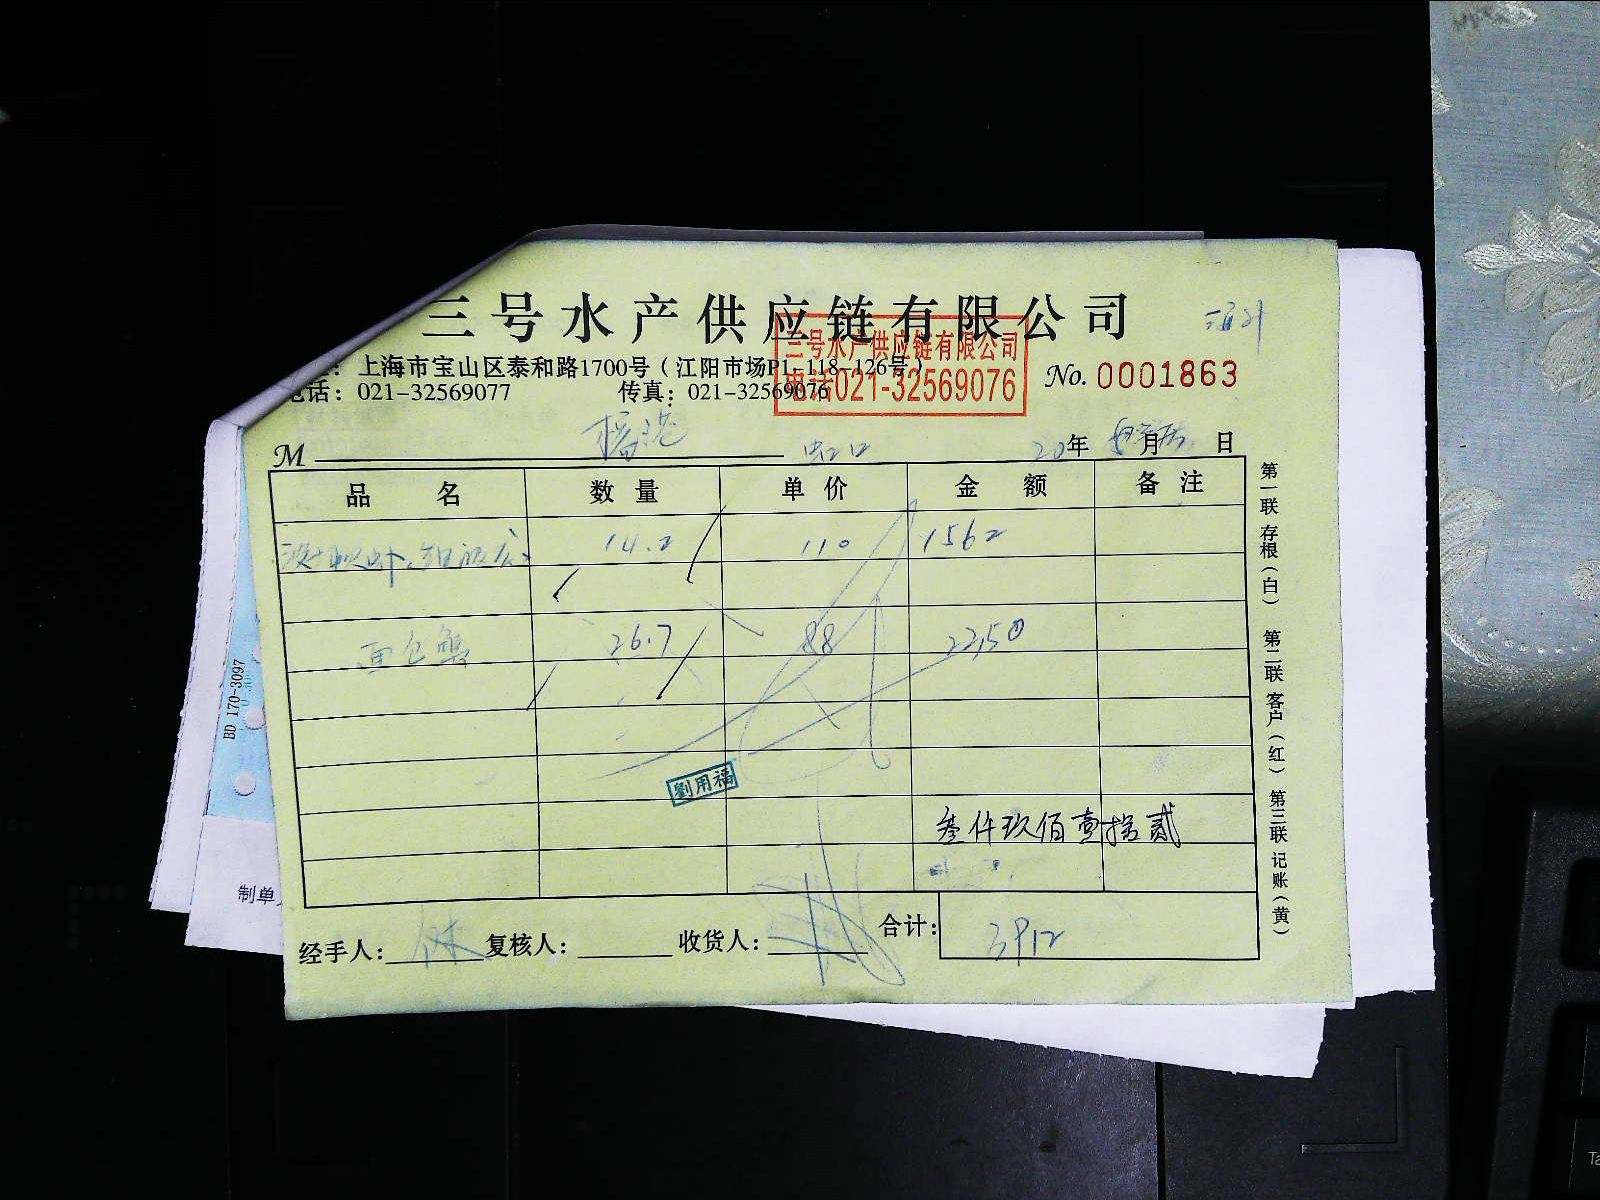 三号水产供应链有限公司
三号水产供应链有限公司
电话021-32569076
：上海市宝山区泰和路1700号（江阳市场P1-118-126号）
No. 0001863
电话：021-32569077 传真：021-32569076
M 虹口 20年 月 日
品名 数量 单价 金额 备注
14.2 110 1562
面包蟹 26.7 88 2350
劉用福
叁仟玖佰壹拾贰
经手人： 复核人： 收货人： 合计：3912
第一联 存根（白） 第二联 客户（红） 第三联 记账（黄）
BD 170-3097
制单
Ta